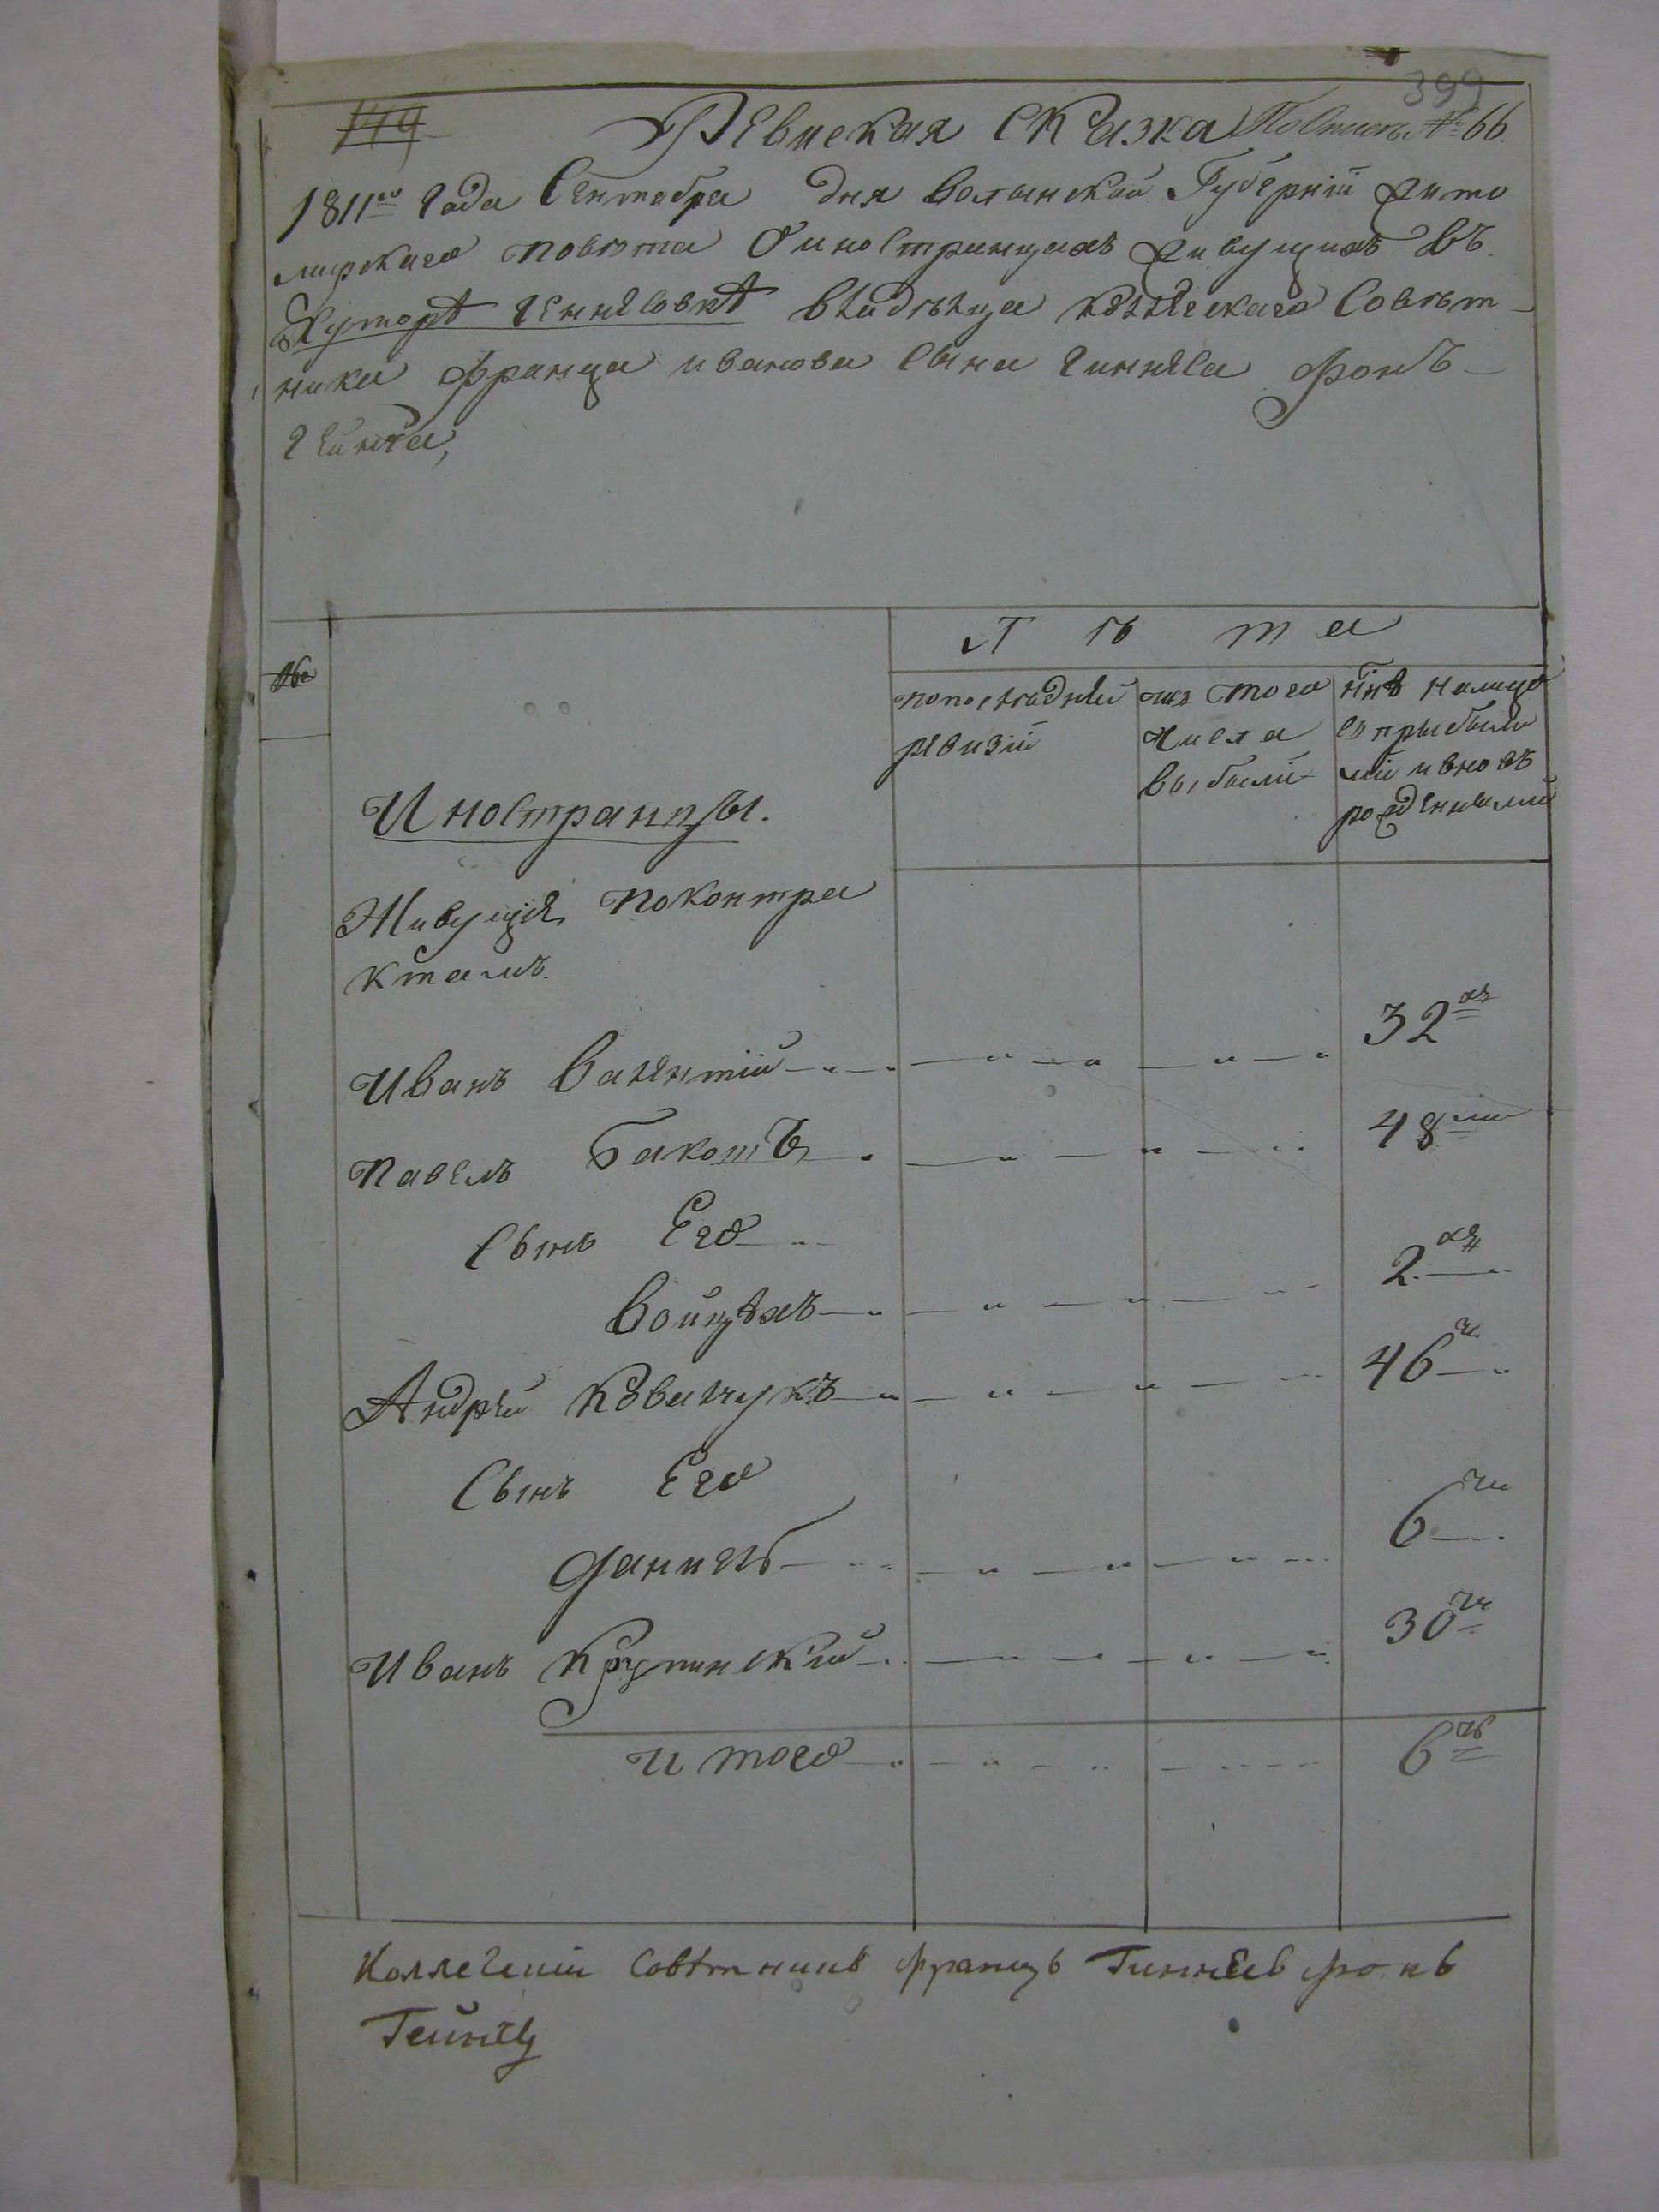 399
149
Ревиская сказка По описи № 66
1811го Года Сентебра дня волынской Губерніи жито
мирского повѣта О иностранцахъ живущихъ въ
Хуторѣ генневовкѣ владѣлца коллежскаго Совѣт-
ника франца иванова сына гиннеса фонъ-
гейнца,
№
Л ѣ т а
попоследней
ревизіи
изъ того
числа
выбыли
ннѣ налицо
съ прыбылы
ми ивновъ
рожденными
Иностранцы.
Живущіе поконтра
ктамъ.
Иванъ валентій 32хъ
Павелъ Бакотъ 48ми
Сынъ Его
войцѣхъ 2хъ
Андрей ковалчукъ 46ти
Сынъ Его
данилъ 6ти
Иванъ крупинскій 30ти
итого 6ть
Коллегскій Совѣтникъ францъ Гиннесъ фонъ
Гейнцъ